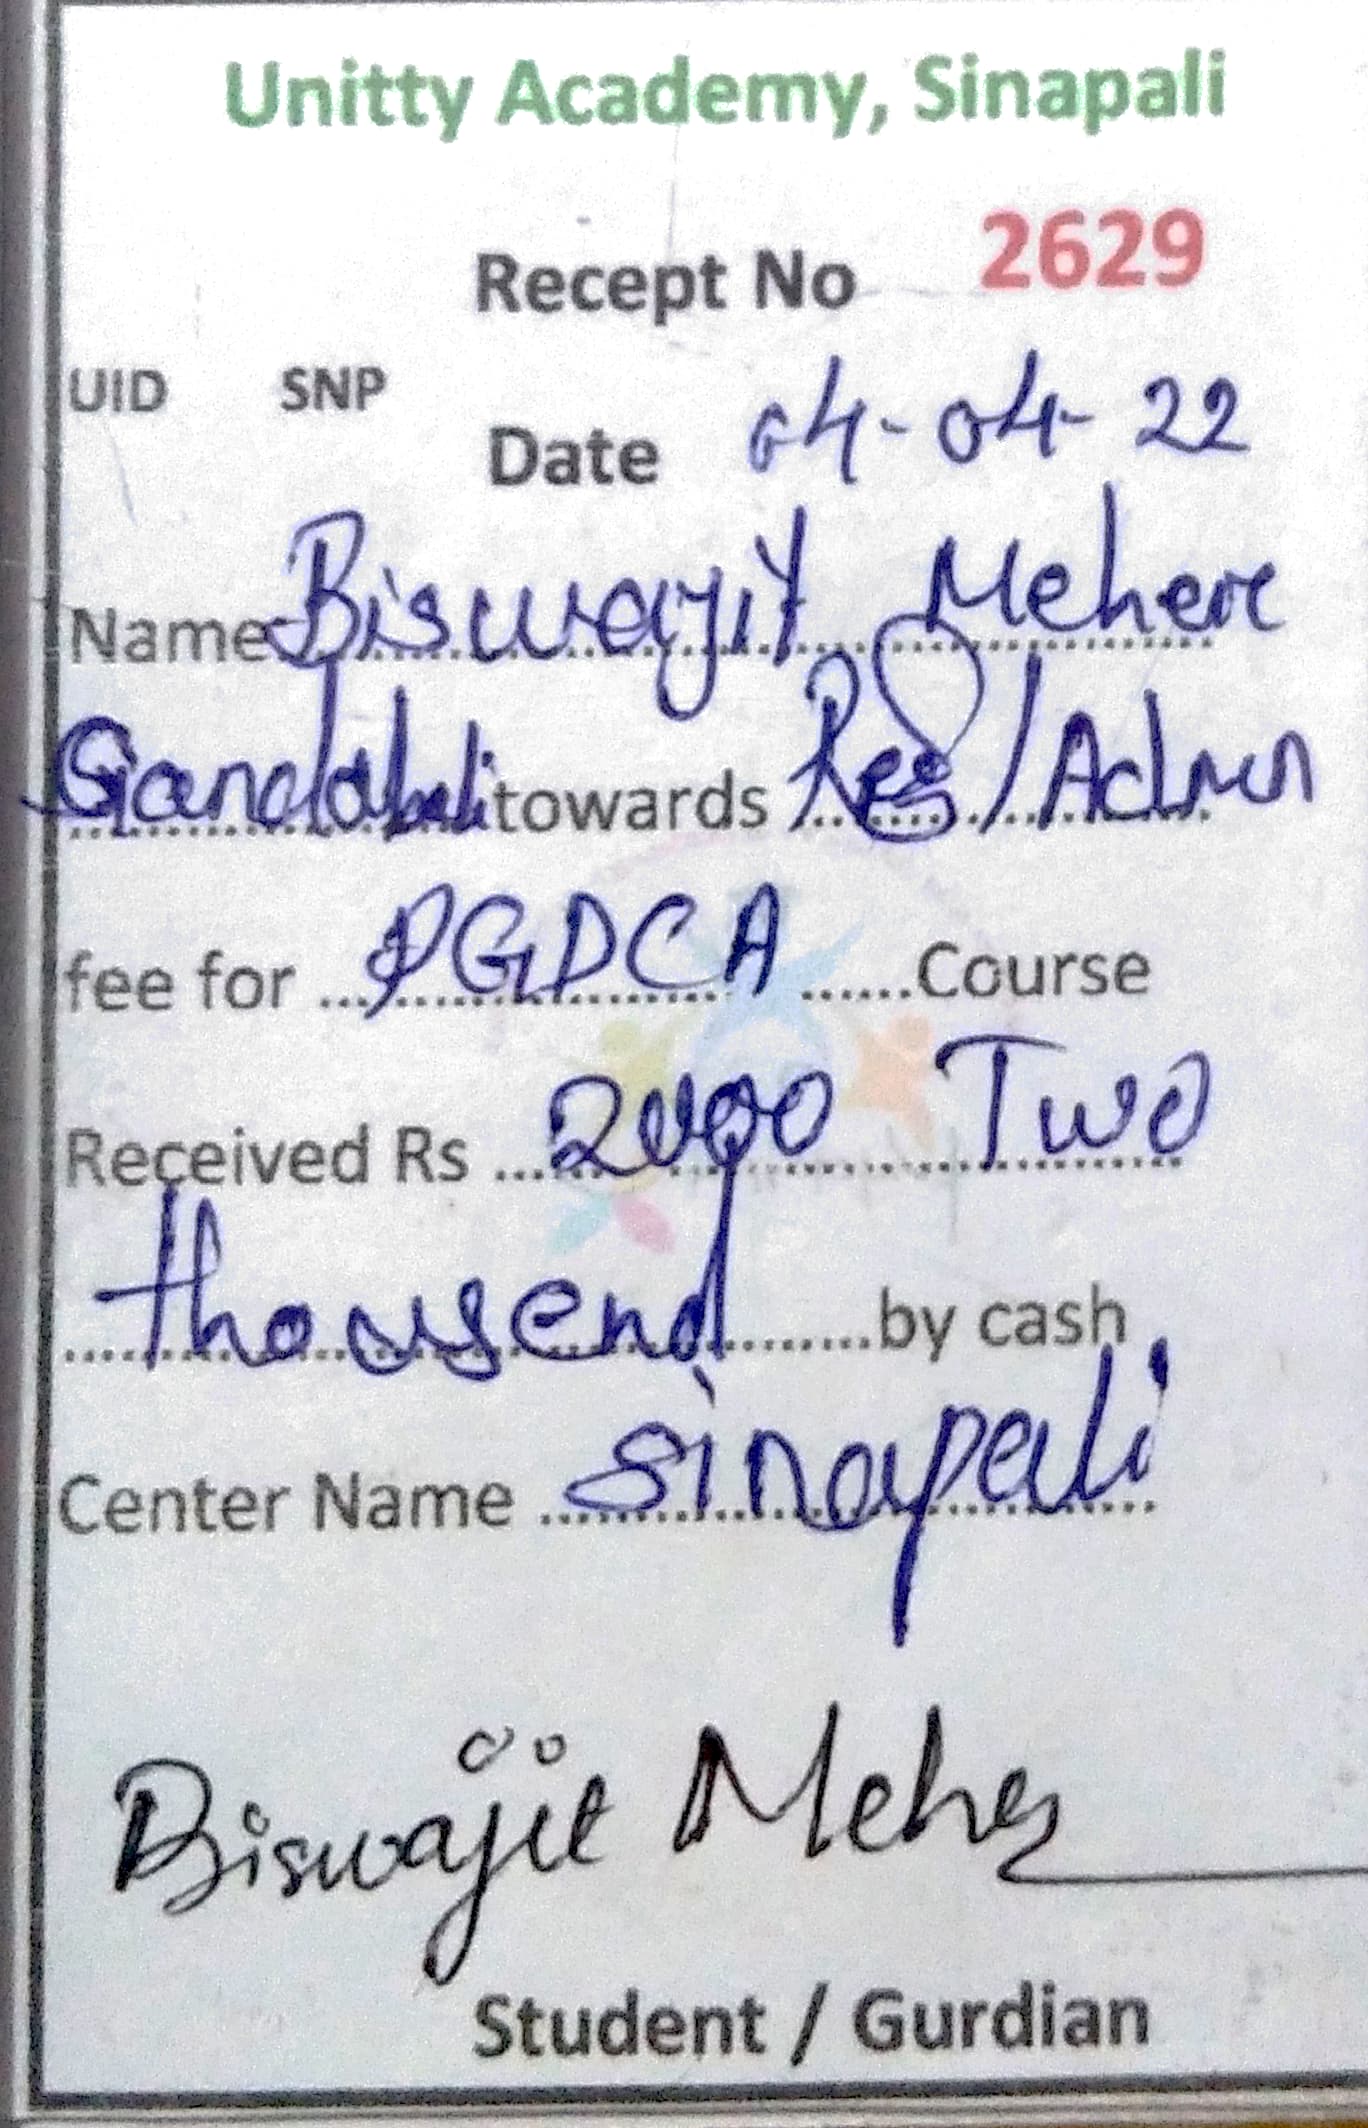 Unitty Academy, Sinapali
Recept No 2629
UID SNP
Date 04-04-22
Name Biswajit Meher
Gandabali towards Reg/Admn
fee for ...PGDCA......Course
Received Rs ...2000 Two
thousend.......by cash
Center Name ...Sinapali
Biswajit Meher
Student / Gurdian